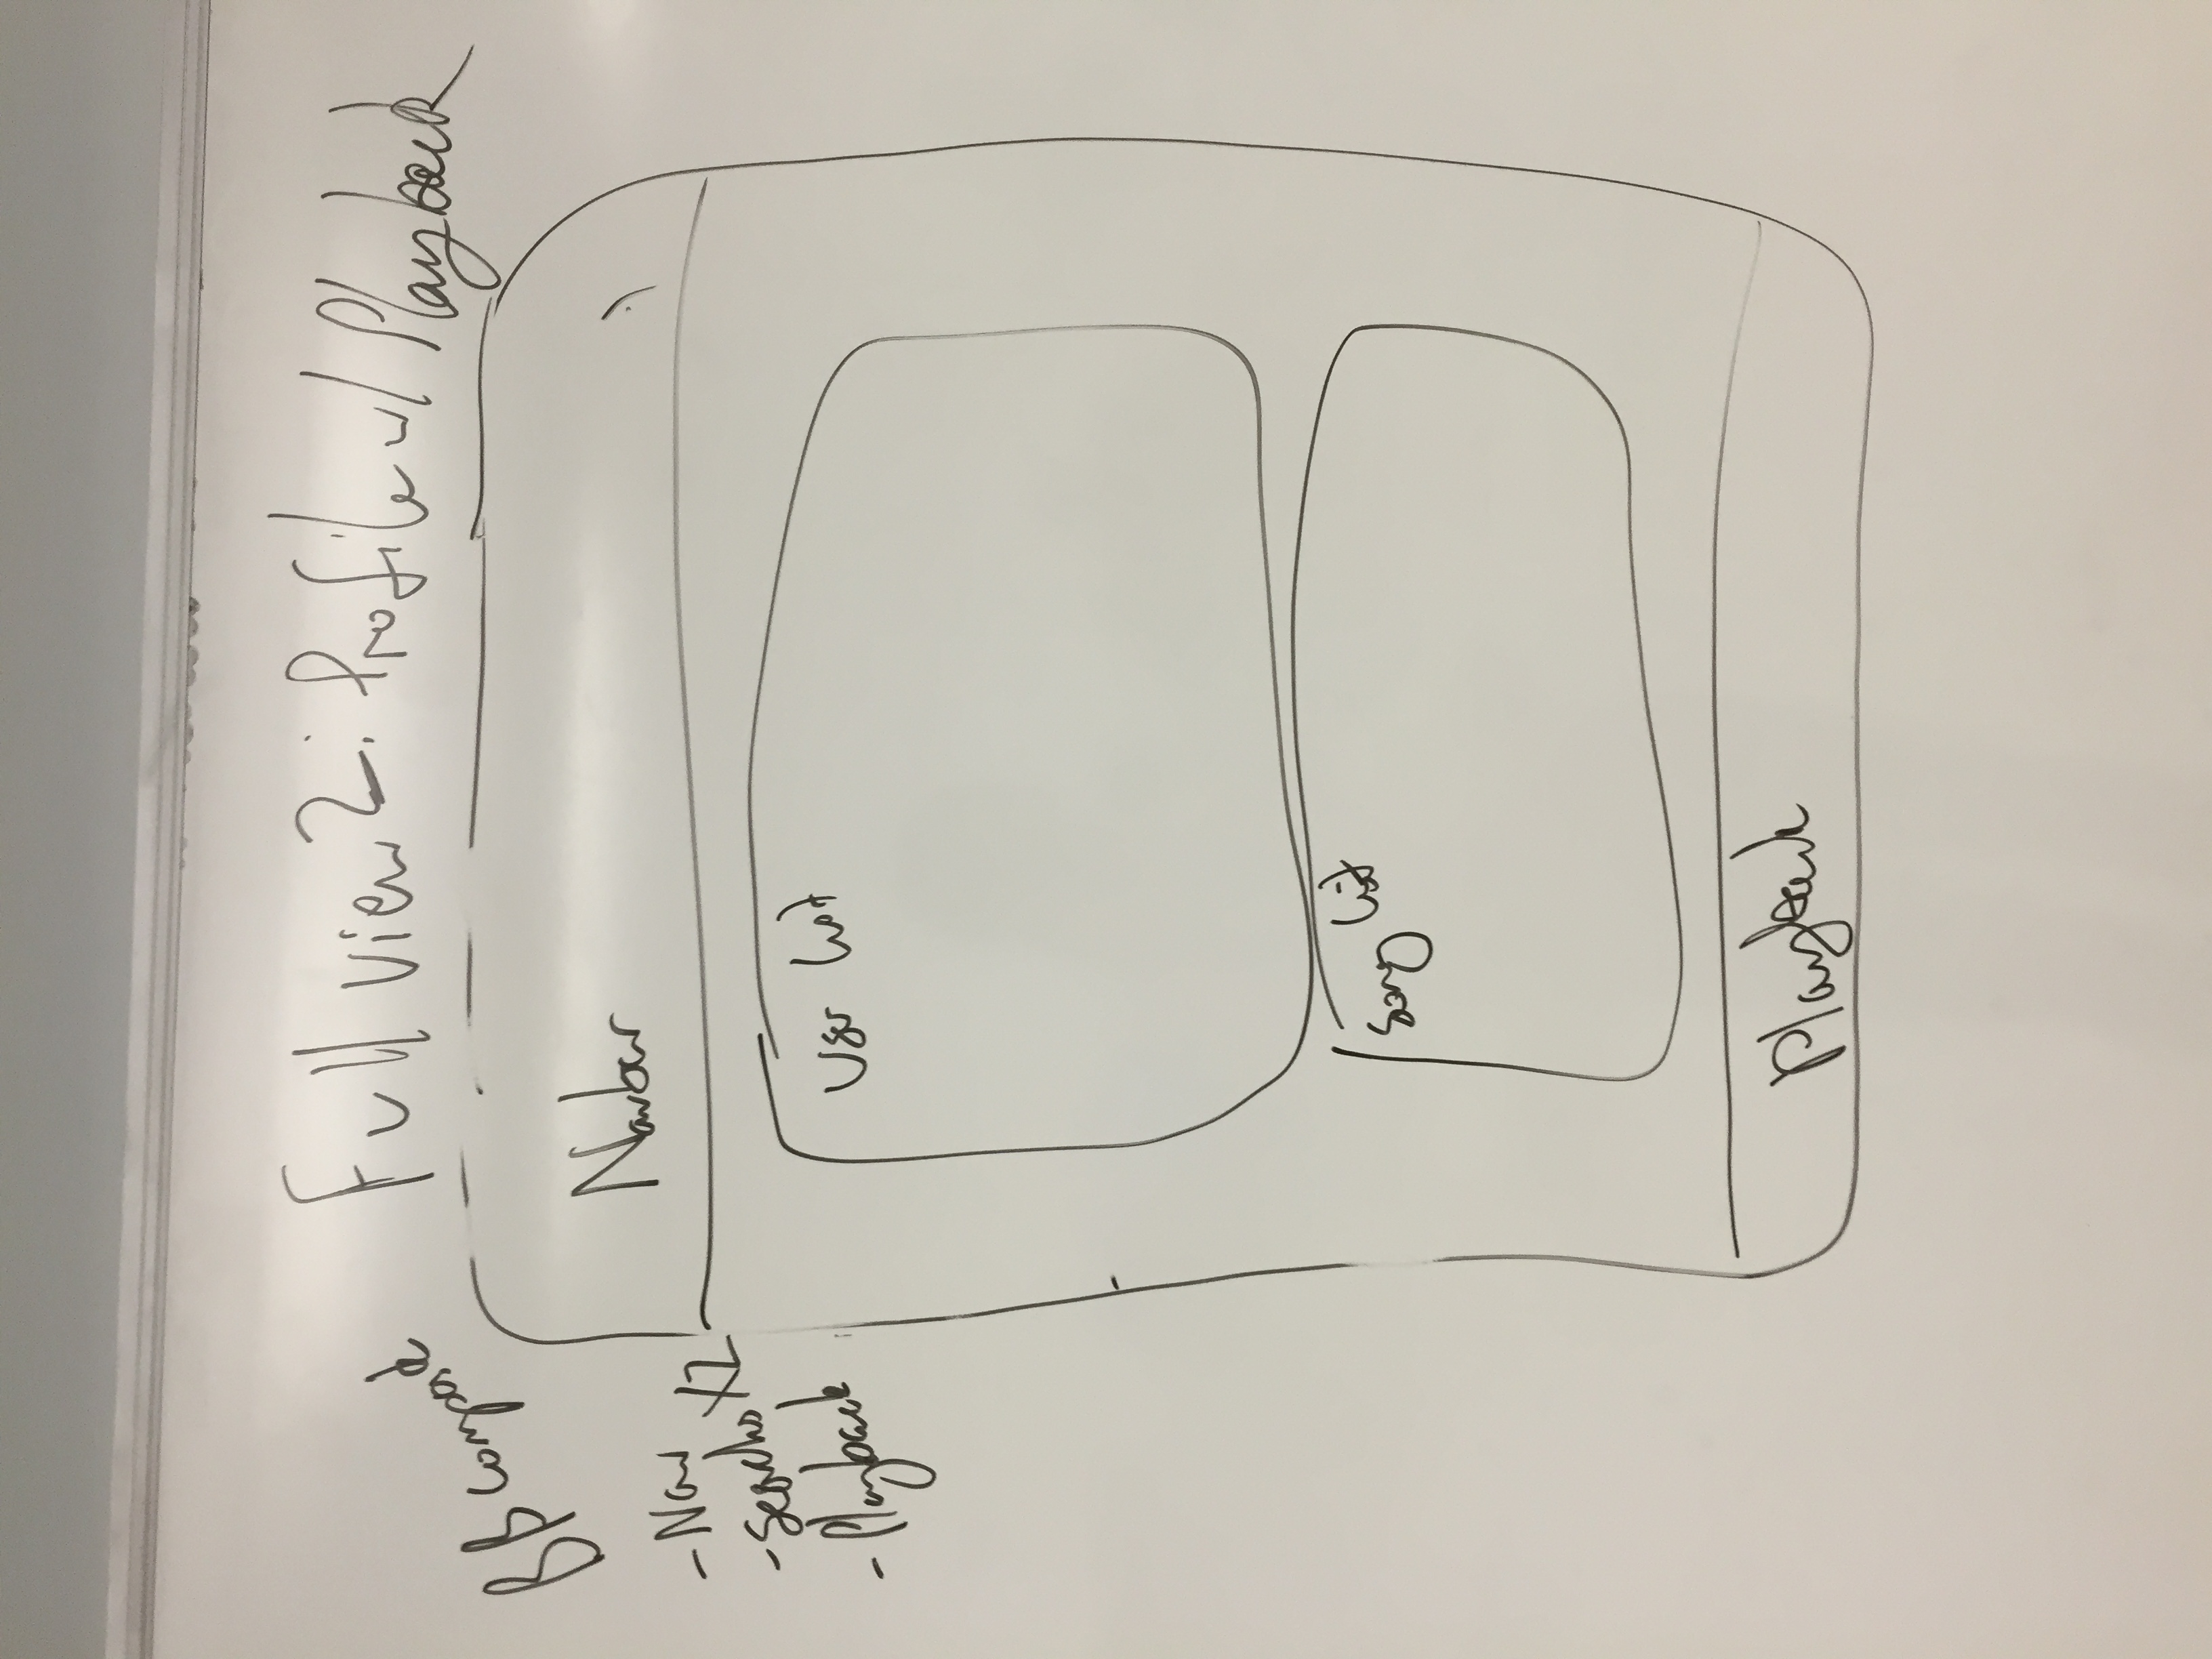 Full view 2: Profile w/ Playback
BB composite
- Nav
- Searches X2
- Playback
Navbar
User list
Song list
Playback